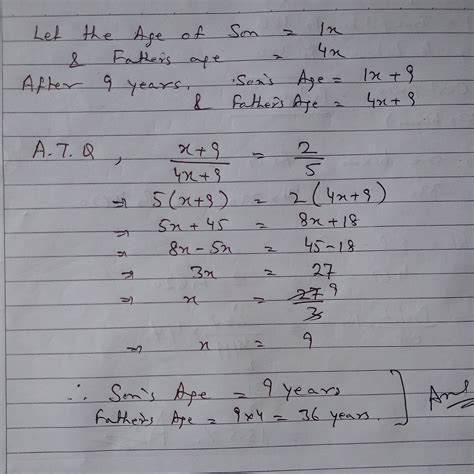 Let the Age of Son = 1x
& Father's age = 4x
After 9 years, Son's Age = 1x + 9
& Father's Age = 4x + 9
A.T.Q, x+9/4x+9 = 2/5
⇒ 5(x+9) = 2(4x+9)
⇒ 5x + 45 = 8x + 18
⇒ 8x - 5x = 45 - 18
⇒ 3x = 27
⇒ x = 27/3 9
⇒ x = 9
∴ Son's Age = 9 years
Father's Age = 9x4 = 36 years. ] Ans